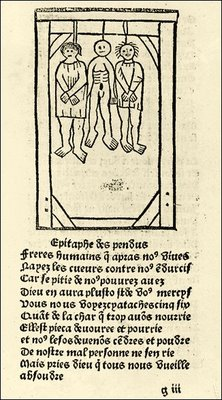 Epitaphe des pendus
Freres humains q̃ apzas noꝰ viues
Nayez les cueurs contre noꝰ ẽdurcif
Car se pitie de noꝰ pouurez auez
Dieu en aura plusto st de voꝰ mercys
Vous nous voyez cy ataches cinq six
Quãt de la char q̃ trop auõs nourrie
Elle est pieca deuouree et pourrie
et noꝰ les os deuenõs cẽdres et pouldre
De nostre mal personne ne sen rie
Mais pries dieu q̃ tous nous vueille
absouldre
g iii